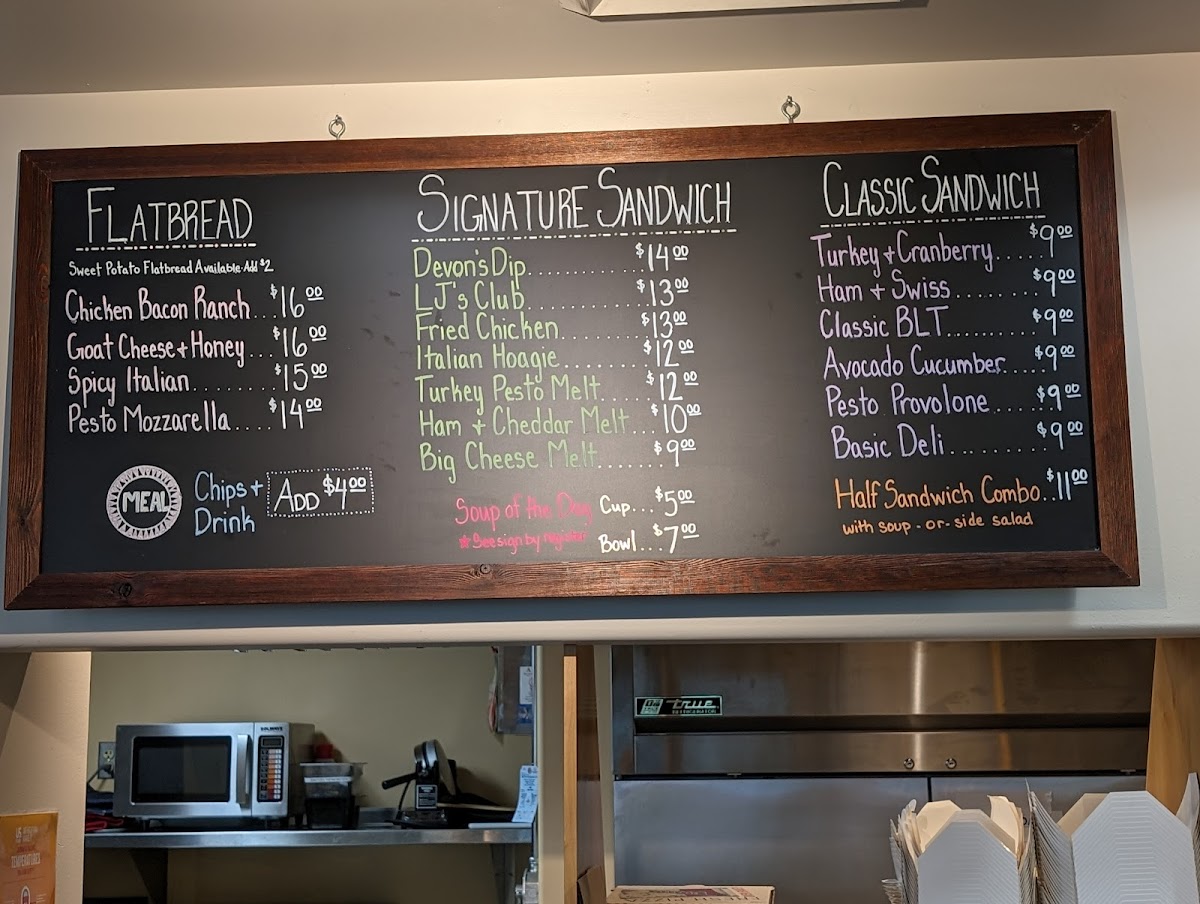 FLATBREAD
Sweet Potato Flatbread Available·Add $2
Chicken Bacon Ranch...$16.00
Goat Cheese+Honey....$16.00
Spicy Italian........$15.00
Pesto Mozzarella.....$14.00
MEAL
Chips +
Drink
ADD $4.00
SIGNATURE SANDWICH
Devon's Dip............$14.00
LJ's Club............$13.00
Fried Chicken.........$13.00
Italian Hoagie.........$12.00
Turkey Pesto Melt.....$12.00
Ham + Cheddar Melt...$10.00
Big Cheese Melt.......$9.00
Soup of the Day Cup...$5.00
*See sign by register Bowl...$7.00
CLASSIC SANDWICH
Turkey + Cranberry.....$9.00
Ham + Swiss.........$9.00
Classic BLT.........$9.00
Avocado Cucumber...$9.00
Pesto Provolone......$9.00
Basic Deli..........$9.00
Half Sandwich Combo..$11.00
with soup -or- side salad
true
REFRIGERATION
TEMPERATURES